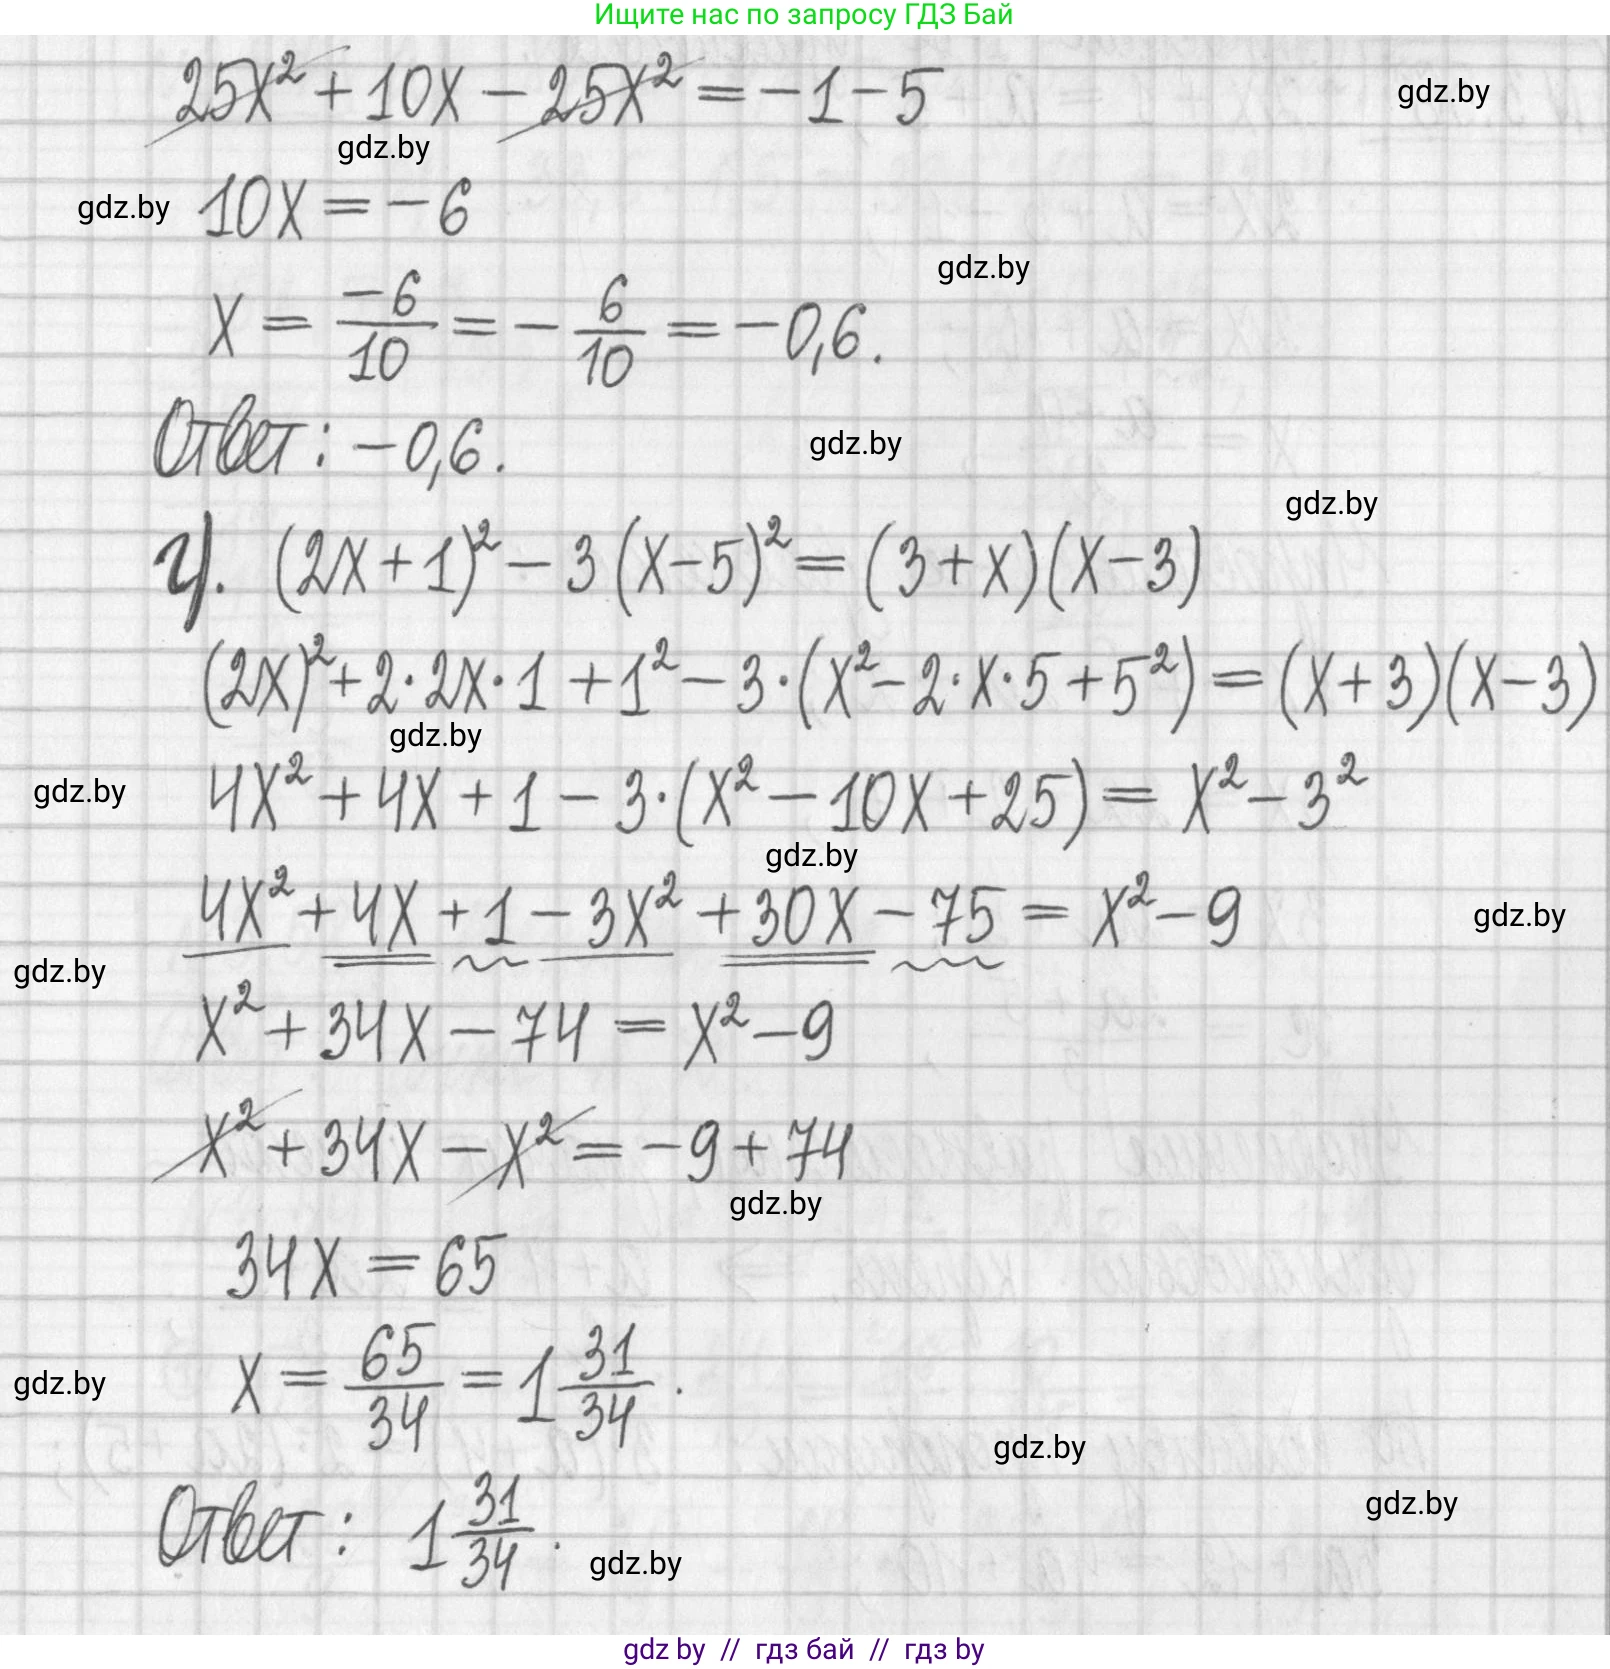 Ищите нас по запросу ГДЗ Бай
25x² + 10x − 25x² = −1 − 5
gdz.by
gdz.by
10x = −6
gdz.by
gdz.by
x = −6/10 = − 6/10 = −0,6.
Ответ: −0,6.
gdz.by
gdz.by
ч. (2x + 1)² − 3(x − 5)² = (3 + x)(x − 3)
(2x)² + 2 · 2x · 1 + 1² − 3 · (x² − 2 · x · 5 + 5²) = (x + 3)(x − 3)
gdz.by
gdz.by
4x² + 4x + 1 − 3 · (x² − 10x + 25) = x² − 3²
gdz.by
4x² + 4x + 1 − 3x² + 30x − 75 = x² − 9
gdz.by
gdz.by
x² + 34x − 74 = x² − 9
x² + 34x − x² = −9 + 74
gdz.by
34x = 65
x = 65/34 = 1 31/34.
gdz.by
gdz.by
Ответ: 1 31/34.
gdz.by
gdz.by
gdz by // гдз бай // гдз by